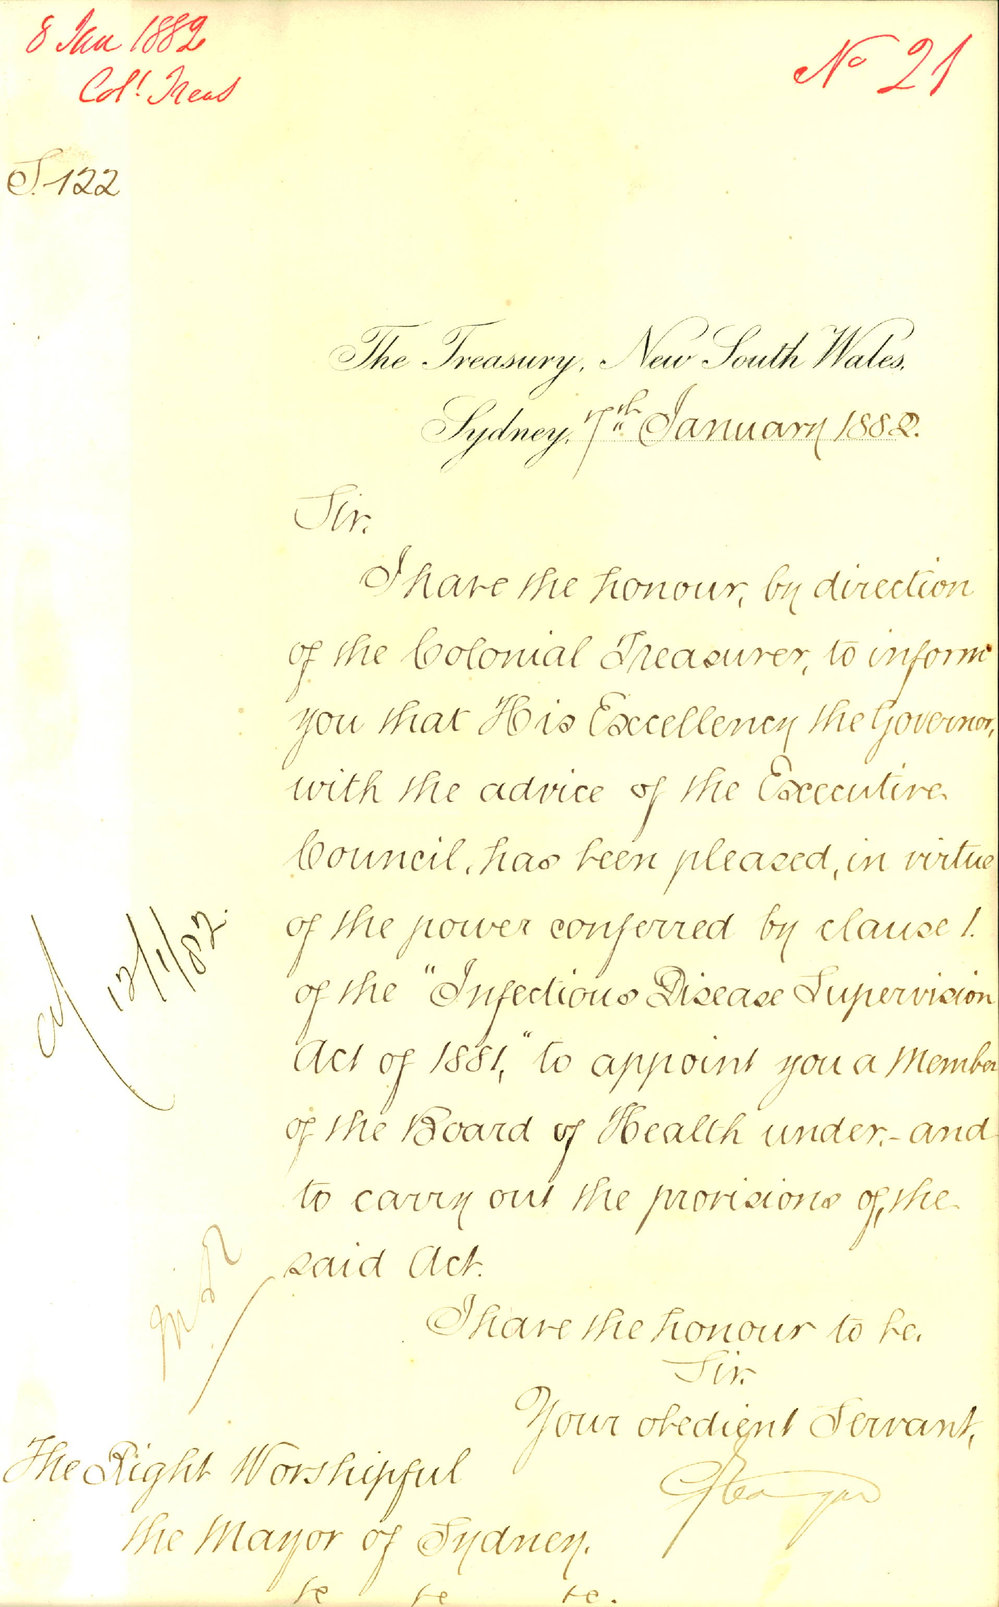 8 Jan 1882
Col! Treas
No 21
S.122
The Treasury, New South Wales,
Sydney, 7th January 1882.
Sir,
I have the honour, by direction
of the Colonial Treasurer, to inform
you that His Excellency the Governor,
with the advice of the Executive
Council, has been pleased, in virtue
of the power conferred by clause 1.
of the "Infectious Disease Supervision
Act of 1881," to appoint you a Member
of the Board of Health under,- and
to carry out the provisions of, the
said Act.
12/1/82.
I have the honour to be,
Sir,
Your obedient Servant,
The Right Worshipful
the Mayor of Sydney.